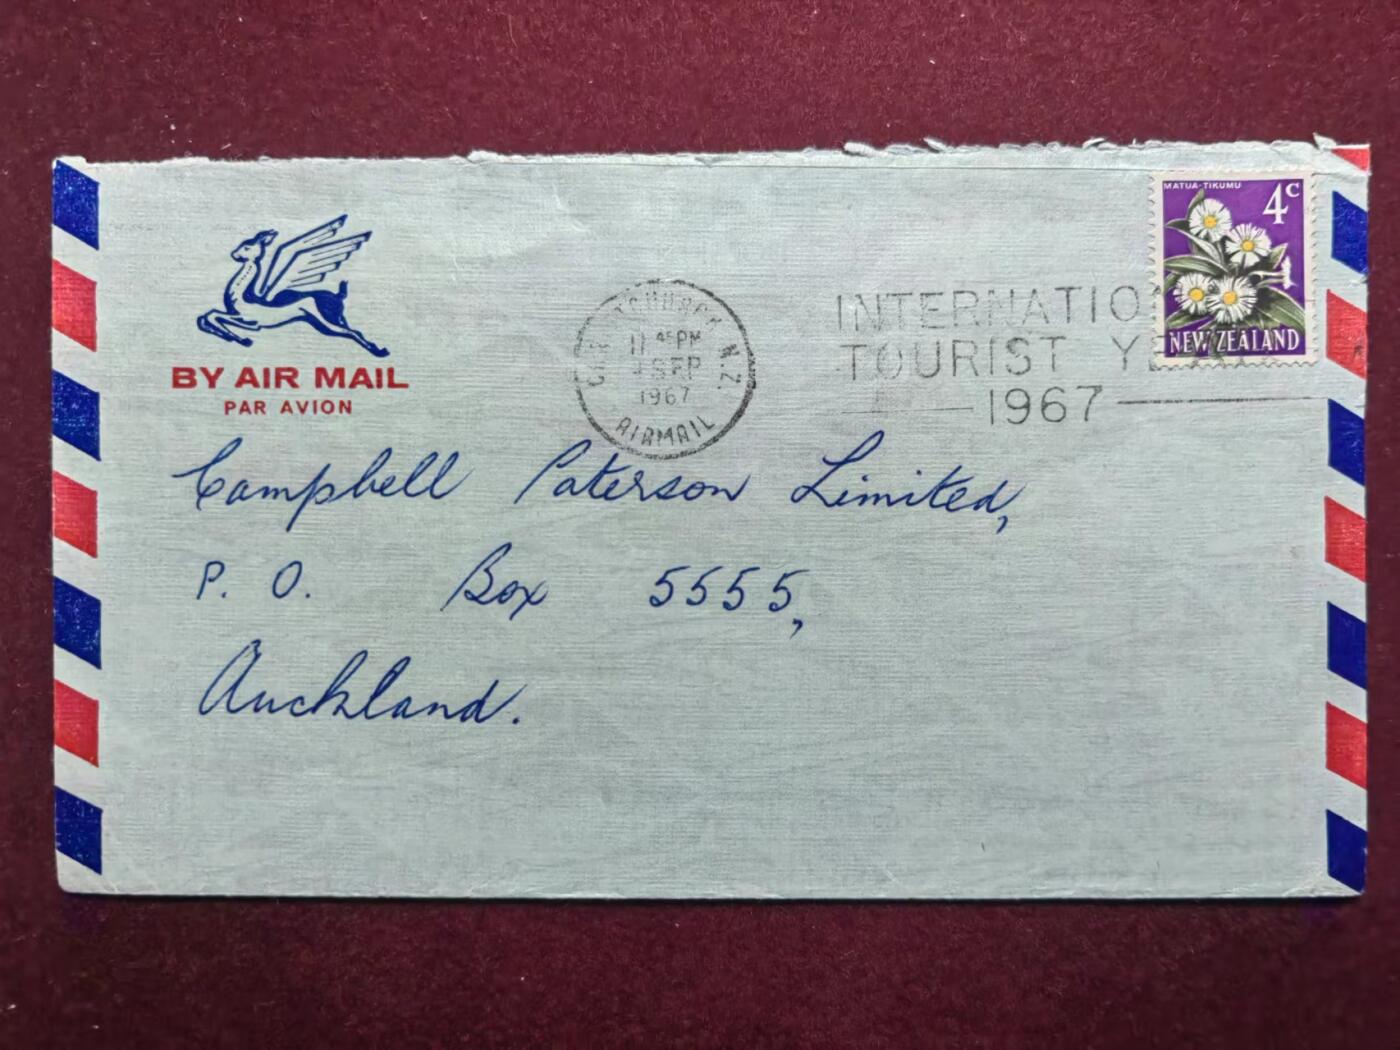 MATUA-TIKUMU
4c
NEW ZEALAND
BY AIR MAIL
PAR AVION
CHRISTCHURCH N.Z.
11 45 PM
SEP
1967
AIRMAIL
INTERNATIO
TOURIST YE
1967
Campbell Paterson Limited,
P. O. Box 5555,
Auckland.